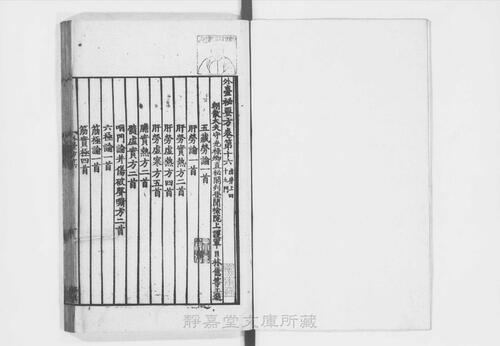 外臺秘要方卷第十六
朝散大夫守光祿卿直秘閣判登聞檢院上護軍臣林億等上進
五藏勞論一首
肝勞論一首
肝勞實熱方二首
肝勞虛熱方四首
肝勞虛寒方五首
膽實熱方二首
髓虛實方二首
咽門論并傷破聲嘶方二首
六極論一首
筋極論一首
筋實極四首
靜嘉堂文庫所藏